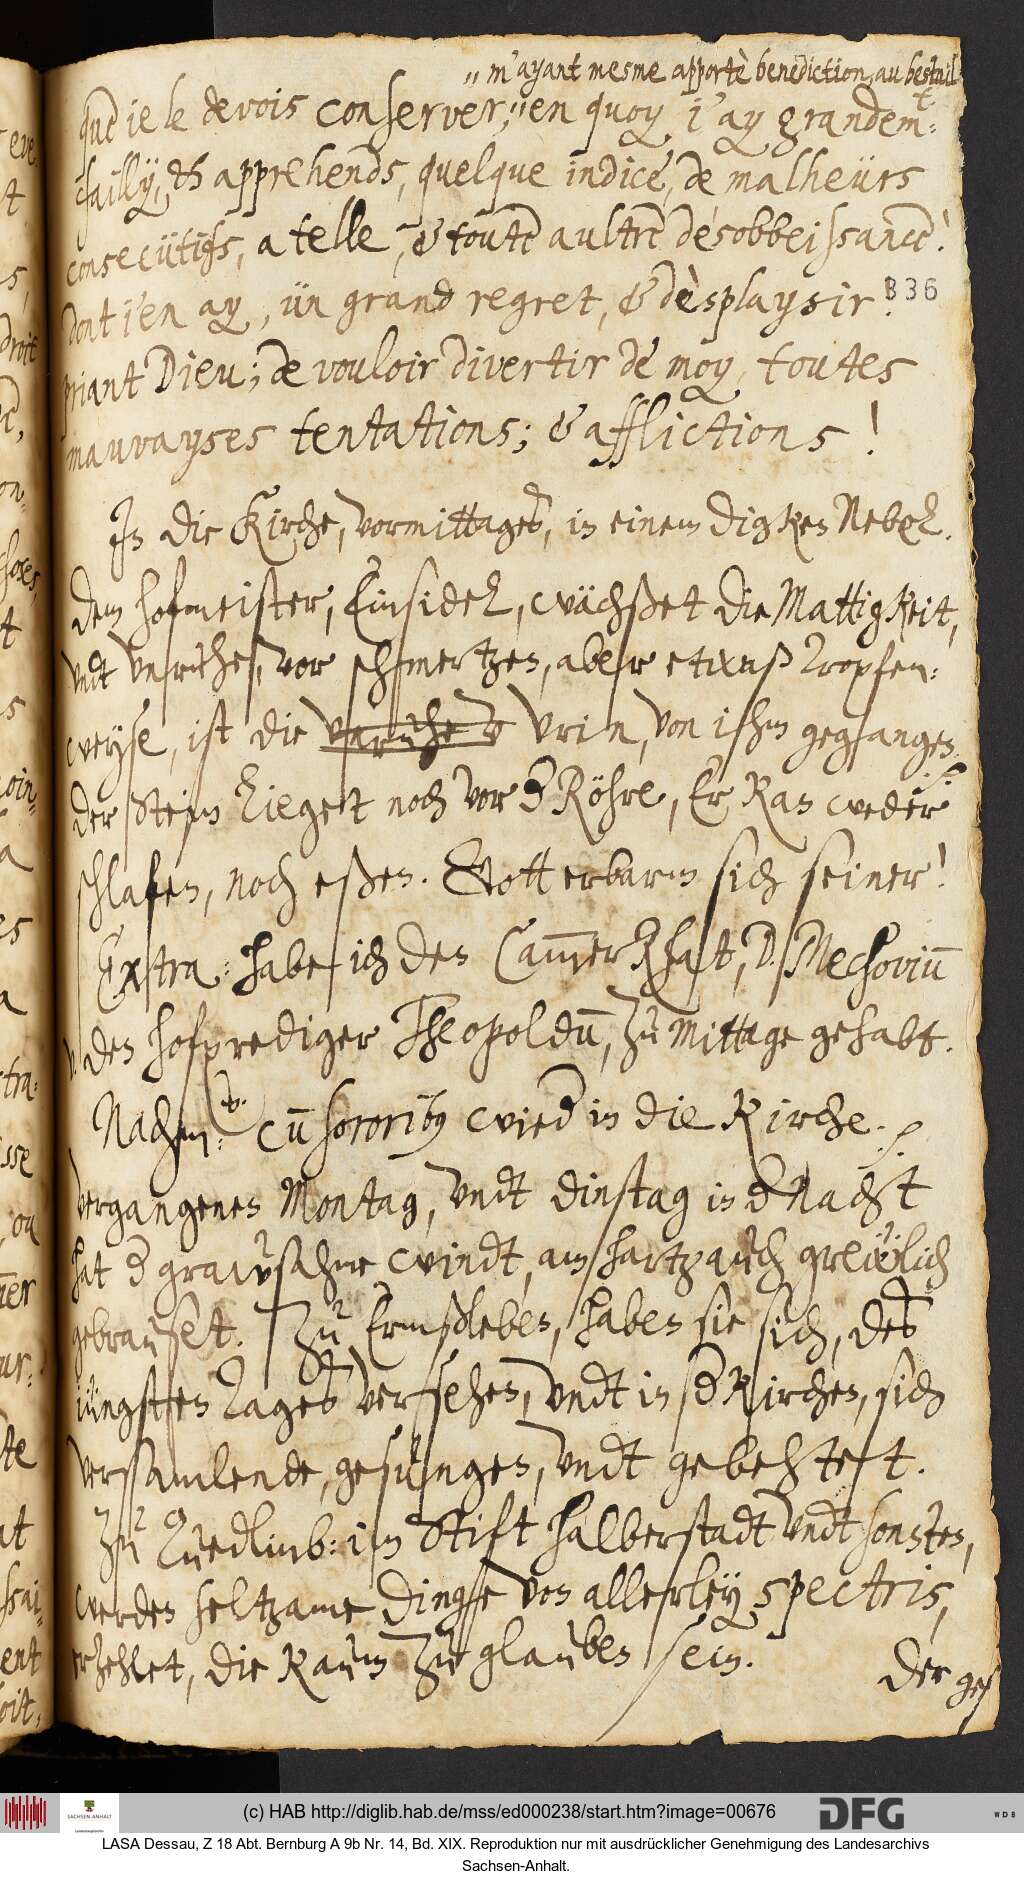 " m'ayant mesme apportè benediction, au bestail
que ie le devois conserver," en quoy i'ay grandem't:
failly, & apprehends, quelque indice, de malheürs
consecütifs, a telle, & toute aultre desobbeissance!
dont i'en ay, ün grand regret, & dèsplaysir!
336
priant Dieu; de vouloir divertir de moy, toutes
mauvayses tentations; & afflictions!
In die Kirche, vormittages, in einem digken Nebel.
Dem hofmeister, Einsidel, wächßet die Mattigkeit,
undt unruhe, vor schmertzen, aber etwaß tropfen:
weyse, ist die unruhe v Urin, von ihm gegangen.
der Stein lieget noch vor der Röhre, Er kan weder
schlafen, noch eßen. Gott erbarm sich seiner!
Extra: habe ich den Cammer Rhat, D. Mechovium
v. den hofprediger Theopoldum, zu Mittage gehabt.
Nachm: v. cum sororibus wieder in die Kirche.
Vergangenen Montag, undt dinstag in der Nacht
hat der grausahme windt, am hartz auch greülich
gebrauset. Zu Ermßleben, haben sie sich, des
iüngsten Tages versehen, undt in der Kirchen, sich
versamlende, gesungen, undt gebehtet.
Zu Quedlinb: im Stift halberstadt undt sonsten,
werden seltzame dinge von allerley spectris,
erzehlet, die kaum zu glauben sein.
Der ges
(c) HAB http://diglib.hab.de/mss/ed000238/start.htm?image=00676
SACHSEN-ANHALT
DFG
WDB
LASA Dessau, Z 18 Abt. Bernburg A 9b Nr. 14, Bd. XIX. Reproduktion nur mit ausdrücklicher Genehmigung des Landesarchivs
Sachsen-Anhalt.